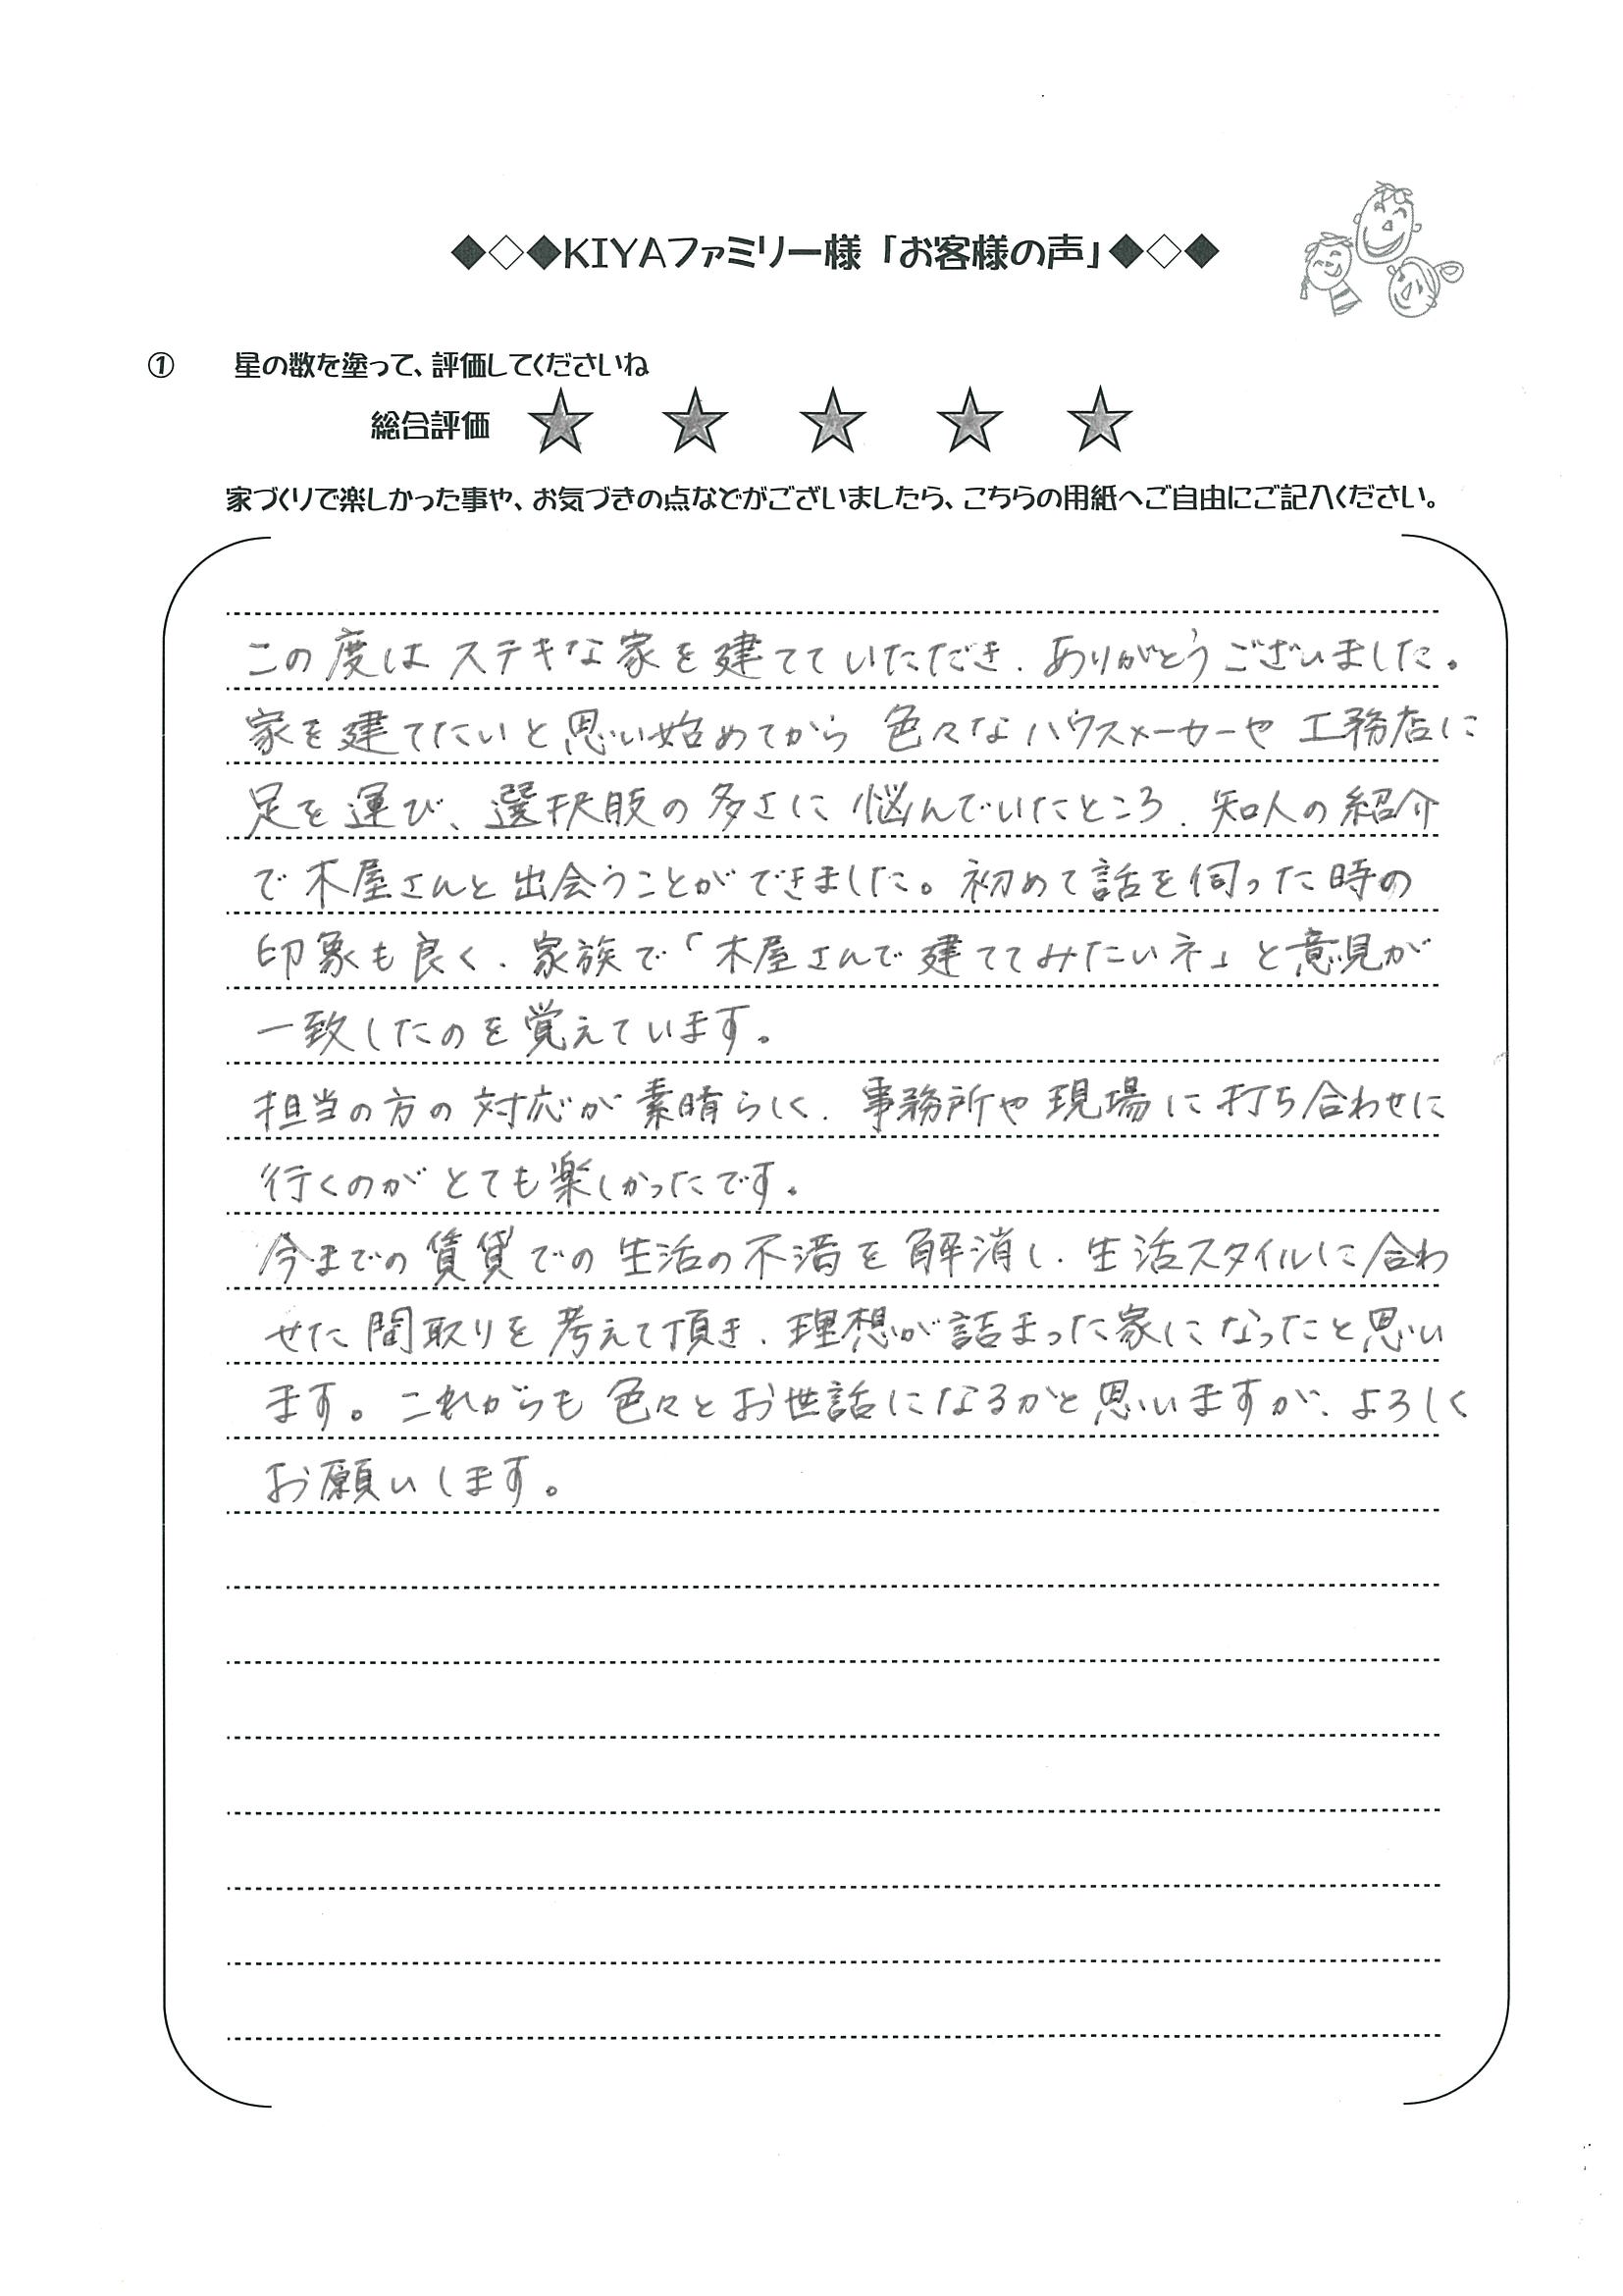 ◆◇◆KIYAファミリー様「お客様の声」◆◇◆
① 星の数を塗って、評価してくださいね
総合評価 ★ ★ ★ ★ ★
家づくりで楽しかった事や、お気づきの点などがございましたら、こちらの用紙へご自由にご記入ください。
この度はステキな家を建てていただき、ありがとうございました。
家を建てたいと思い始めてから色々なハウスメーカーや工務店に
足を運び、選択肢の多さに悩んでいたところ、知人の紹介
で木屋さんと出会うことができました。初めて話を伺った時の
印象も良く、家族で「木屋さんで建ててみたいネ」と意見が
一致したのを覚えています。
担当の方の対応が素晴らしく、事務所や現場に打ち合わせに
行くのがとても楽しかったです。
今までの賃貸での生活の不満を解消し、生活スタイルに合わ
せた間取りを考えて頂き、理想が詰まった家になったと思い
ます。これからも色々とお世話になるかと思いますが、よろしく
お願いします。